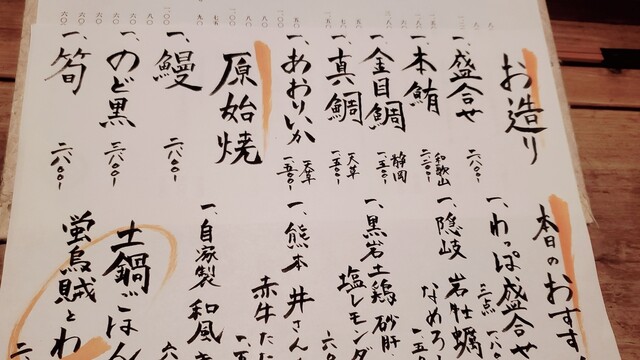 お造り
一、盛合せ 二八〇〇
一、本鮪 和歌山 二二〇〇
一、金目鯛 静岡 一、五〇〇
一、真鯛 天草 一、五〇〇
一、あおりいか 天草 一、五〇〇
原始焼
一、鰻 二八〇〇
一、のど黒 三八〇〇
一、筍
本日のおす
一、わっぱ盛合せ 三点 一八
一、隠岐 岩牡蠣
なめろう
一、黒岩土鶏 砂肝
塩レモン
一、熊本 井さん
赤牛たた
一、自家製 和風
土鍋ごはん
蛍烏賊とわ